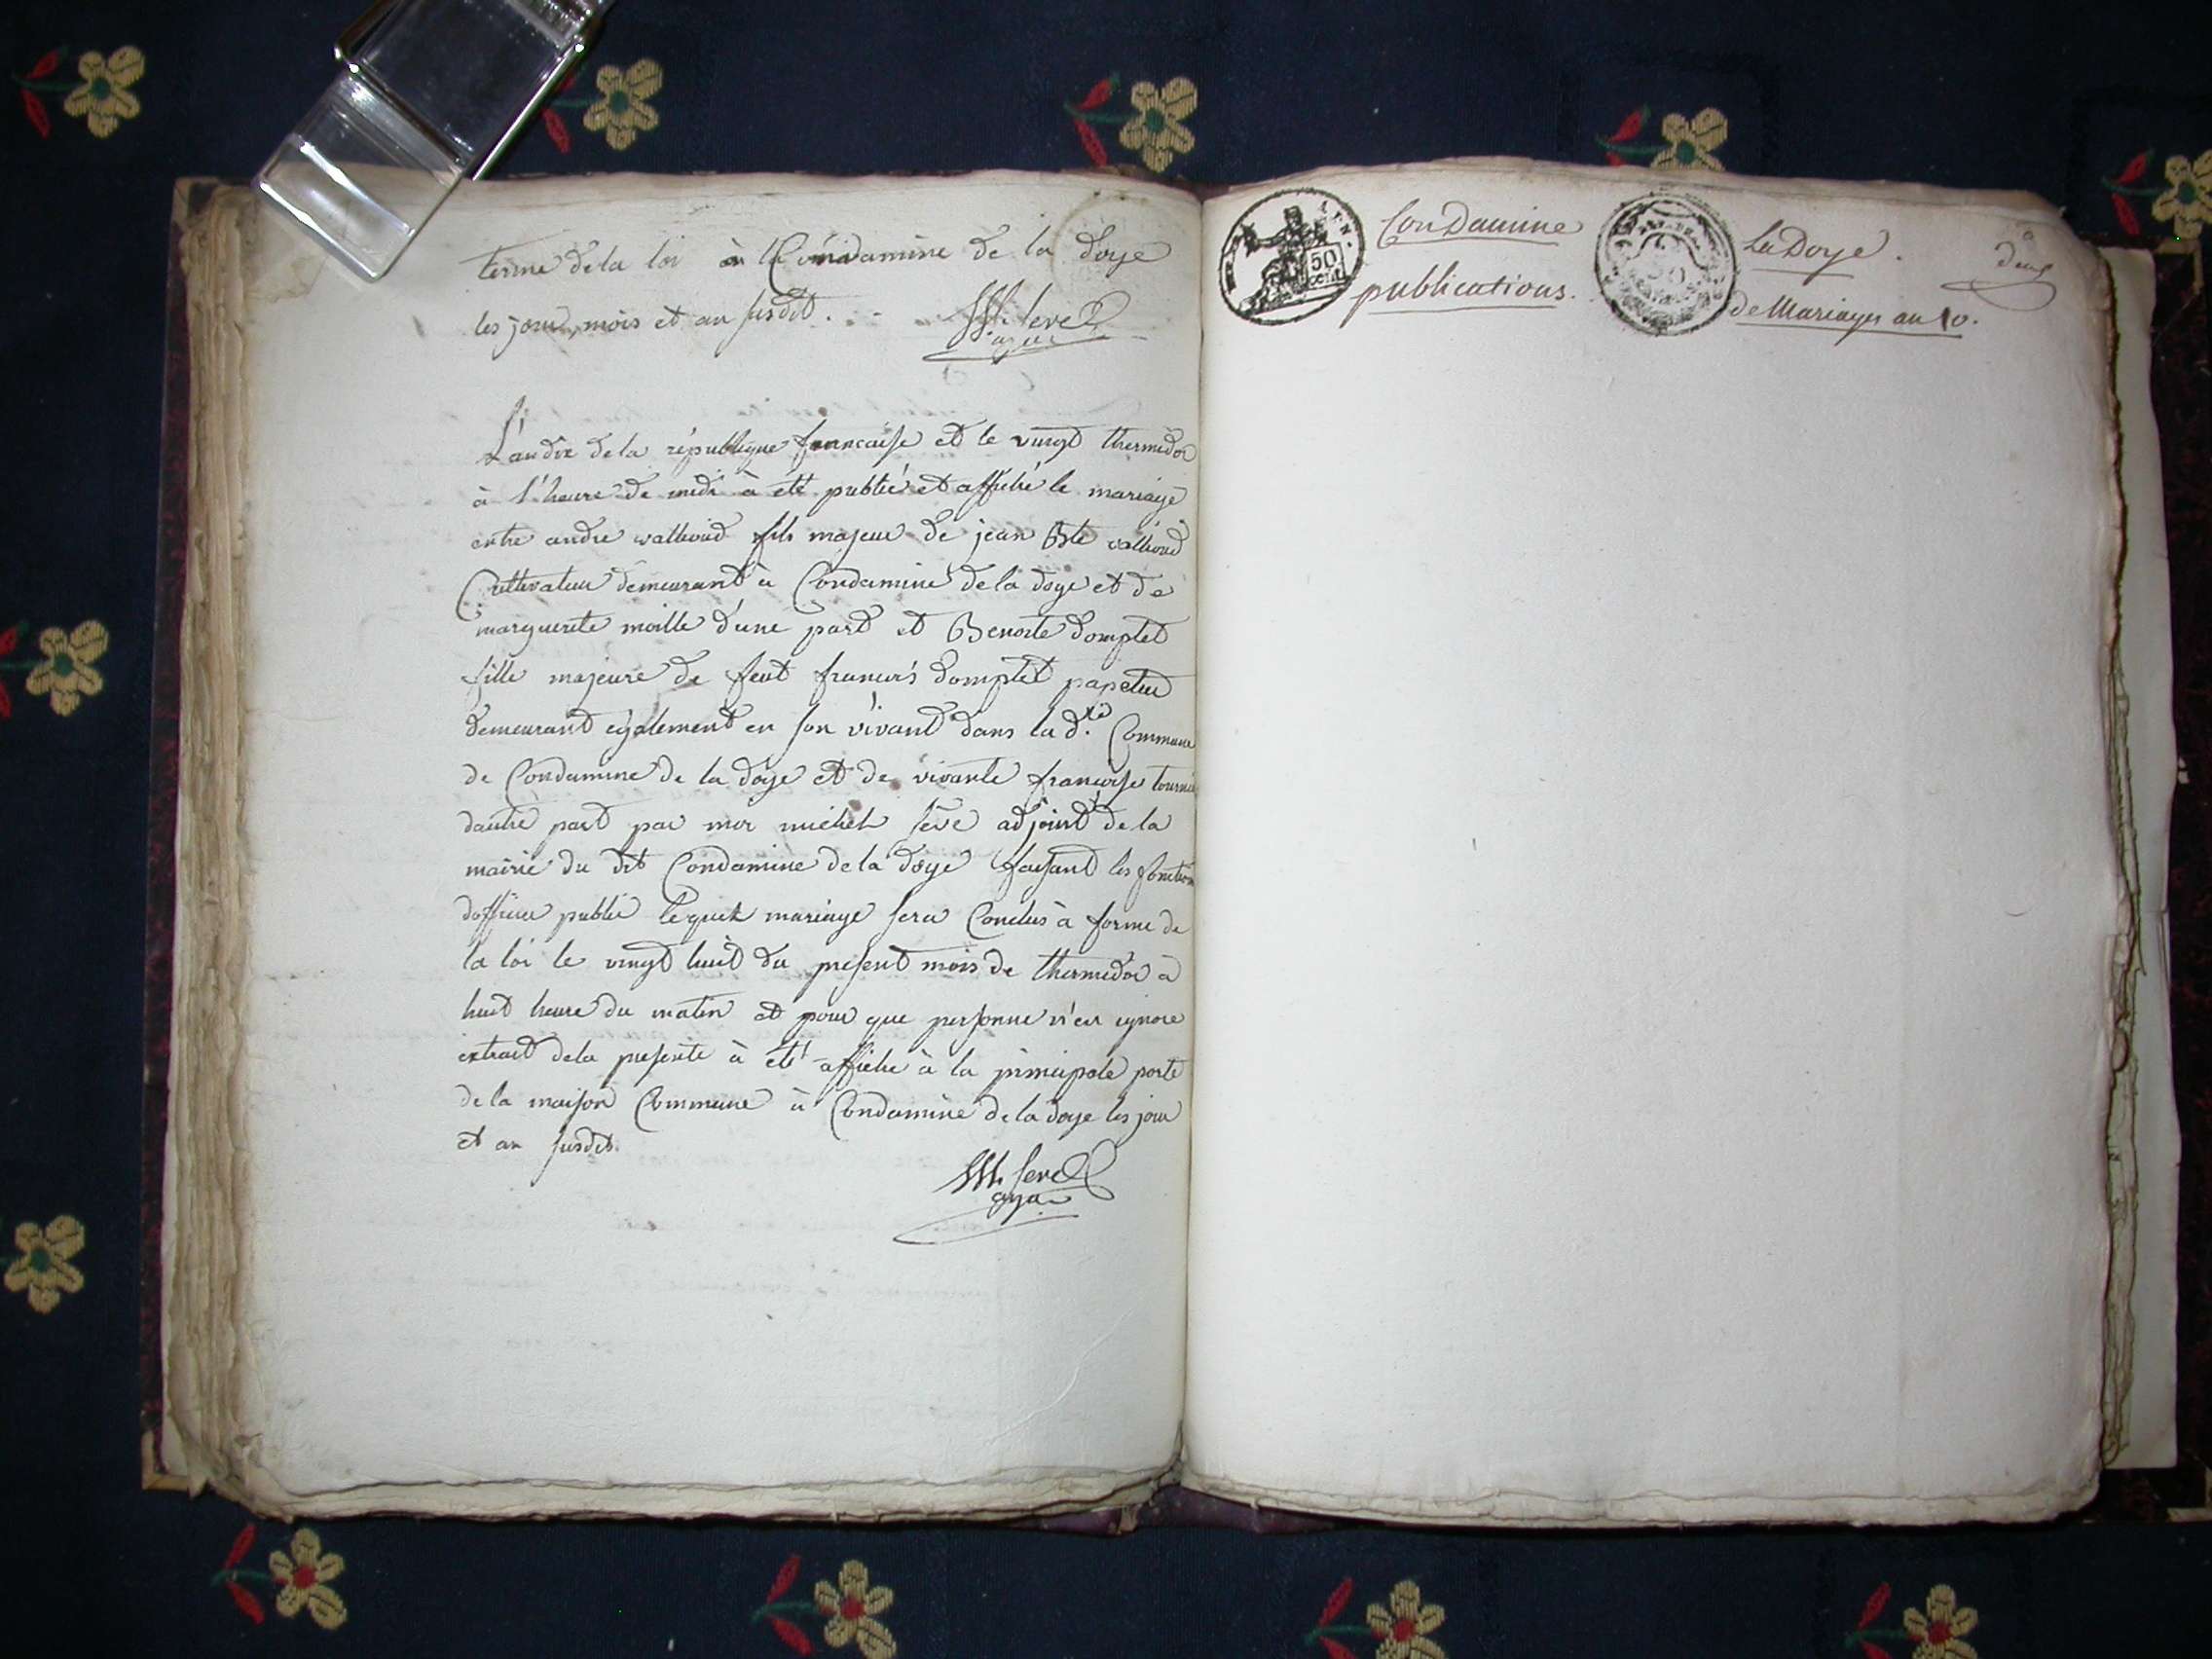 terme de la loi à la Condamine de la doye
les jour, mois et an susdit.
M. seve
L'an dix de la république francaise et le vingt thermidor
à l'heure de midi à eté publié et affiché le mariage
entre andre vallioud fils majeur de jean Bte vallioud
Cultivateur demeurant à Condamine de la doye et de
marguerite moille d'une part et Benoite domptet
fille majeure de feut francois domptet papetier
demeurant également en son vivant dans la d.te Commune
de Condamine de la doye et de vivante françoise
dautre part par moi michel seve adjoint de la
mairie du dit Condamine de la doye faisant les fonction
dofficier public lequel mariage sera Conclus à forme de
la loi le vingt huit du present mois de thermidor à
huit heure du matin et pour que personne n'en ignore
extrait de la presente à été affiche à la principale porte
de la maison Commune à Condamine de la doye les jour
et an susdit.
M. seve
Condamine
La Doye.
deux
publications.
de Mariages an 10.
AIN.
50
cent